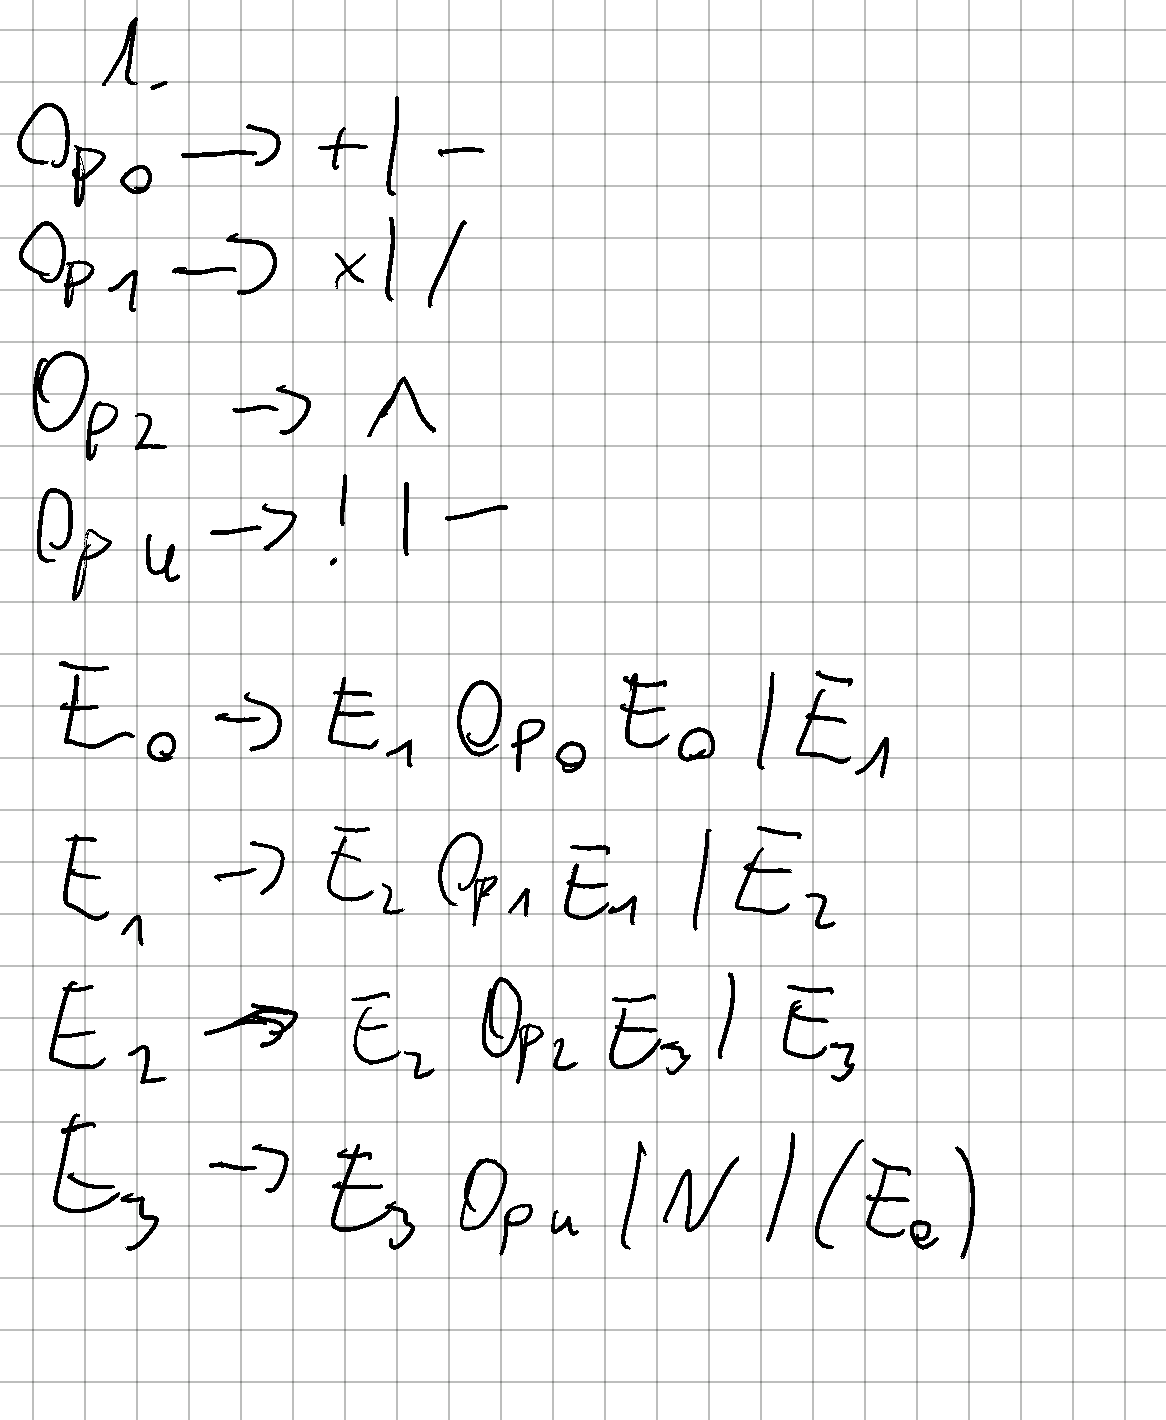 1.
Op₀ → + | -
Op₁ → × | /
Op₂ → ∧
Opᵤ → ! | -
E₀ → E₁ Op₀ E₀ | E₁
E₁ → E₂ Op₁ E₁ | E₂
E₂ → E₂ Op₂ E₃ | E₃
E₃ → E₃ Opᵤ | N | (E₀)